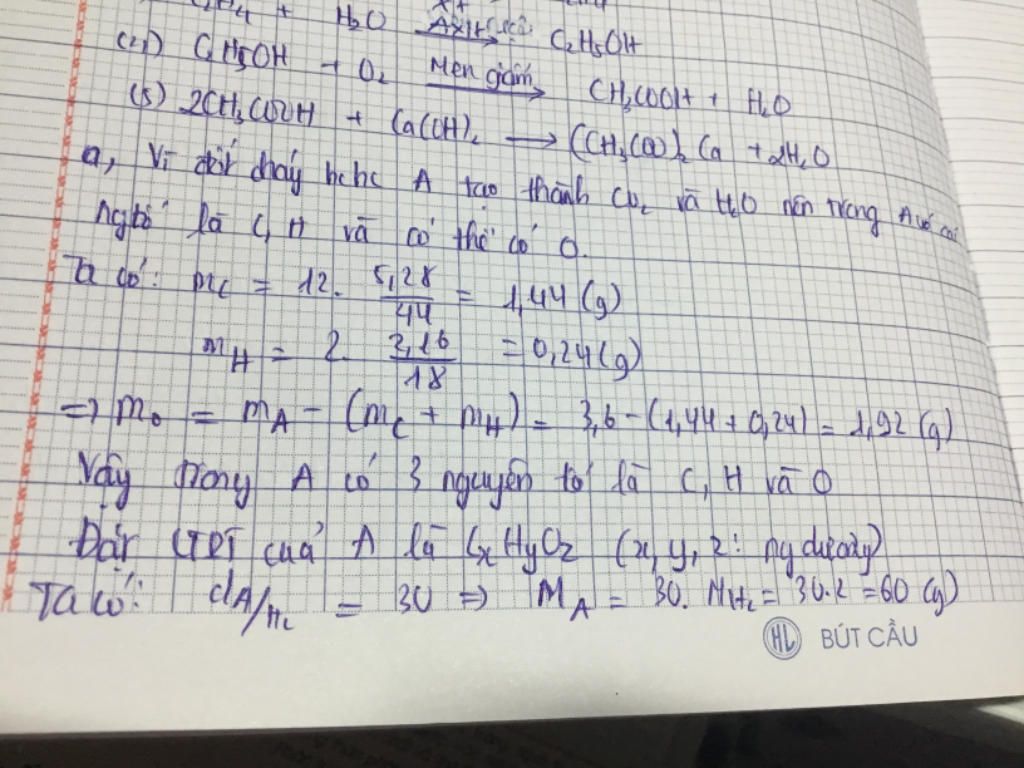 H₂O Axit C₂H₅OH
(4) C₂H₅OH + O₂ Men giấm → CH₃COOH + H₂O
(5) 2CH₃COOH + Ca(OH)₂ → (CH₃COO)₂Ca + 2H₂O
a, Vì đốt cháy hchc A tạo thành CO₂ và H₂O nên trong A có các
ngtố là C, H và có thể có O.
Ta có: mC = 12. 5,28/44 = 1,44 (g)
mH = 2. 2,16/18 = 0,24 (g)
=> mO = mA - (mC + mH) = 3,6 - (1,44 + 0,24) = 1,92 (g)
Vậy trong A có 3 nguyên tố là C, H và O
Đặt CTPT của A là CxHyOz (x, y, z: ng dương)
Ta có: dA/H₂ = 30 => MA = 30. MH₂ = 30.2 = 60 (g)
HL BÚT CẦU